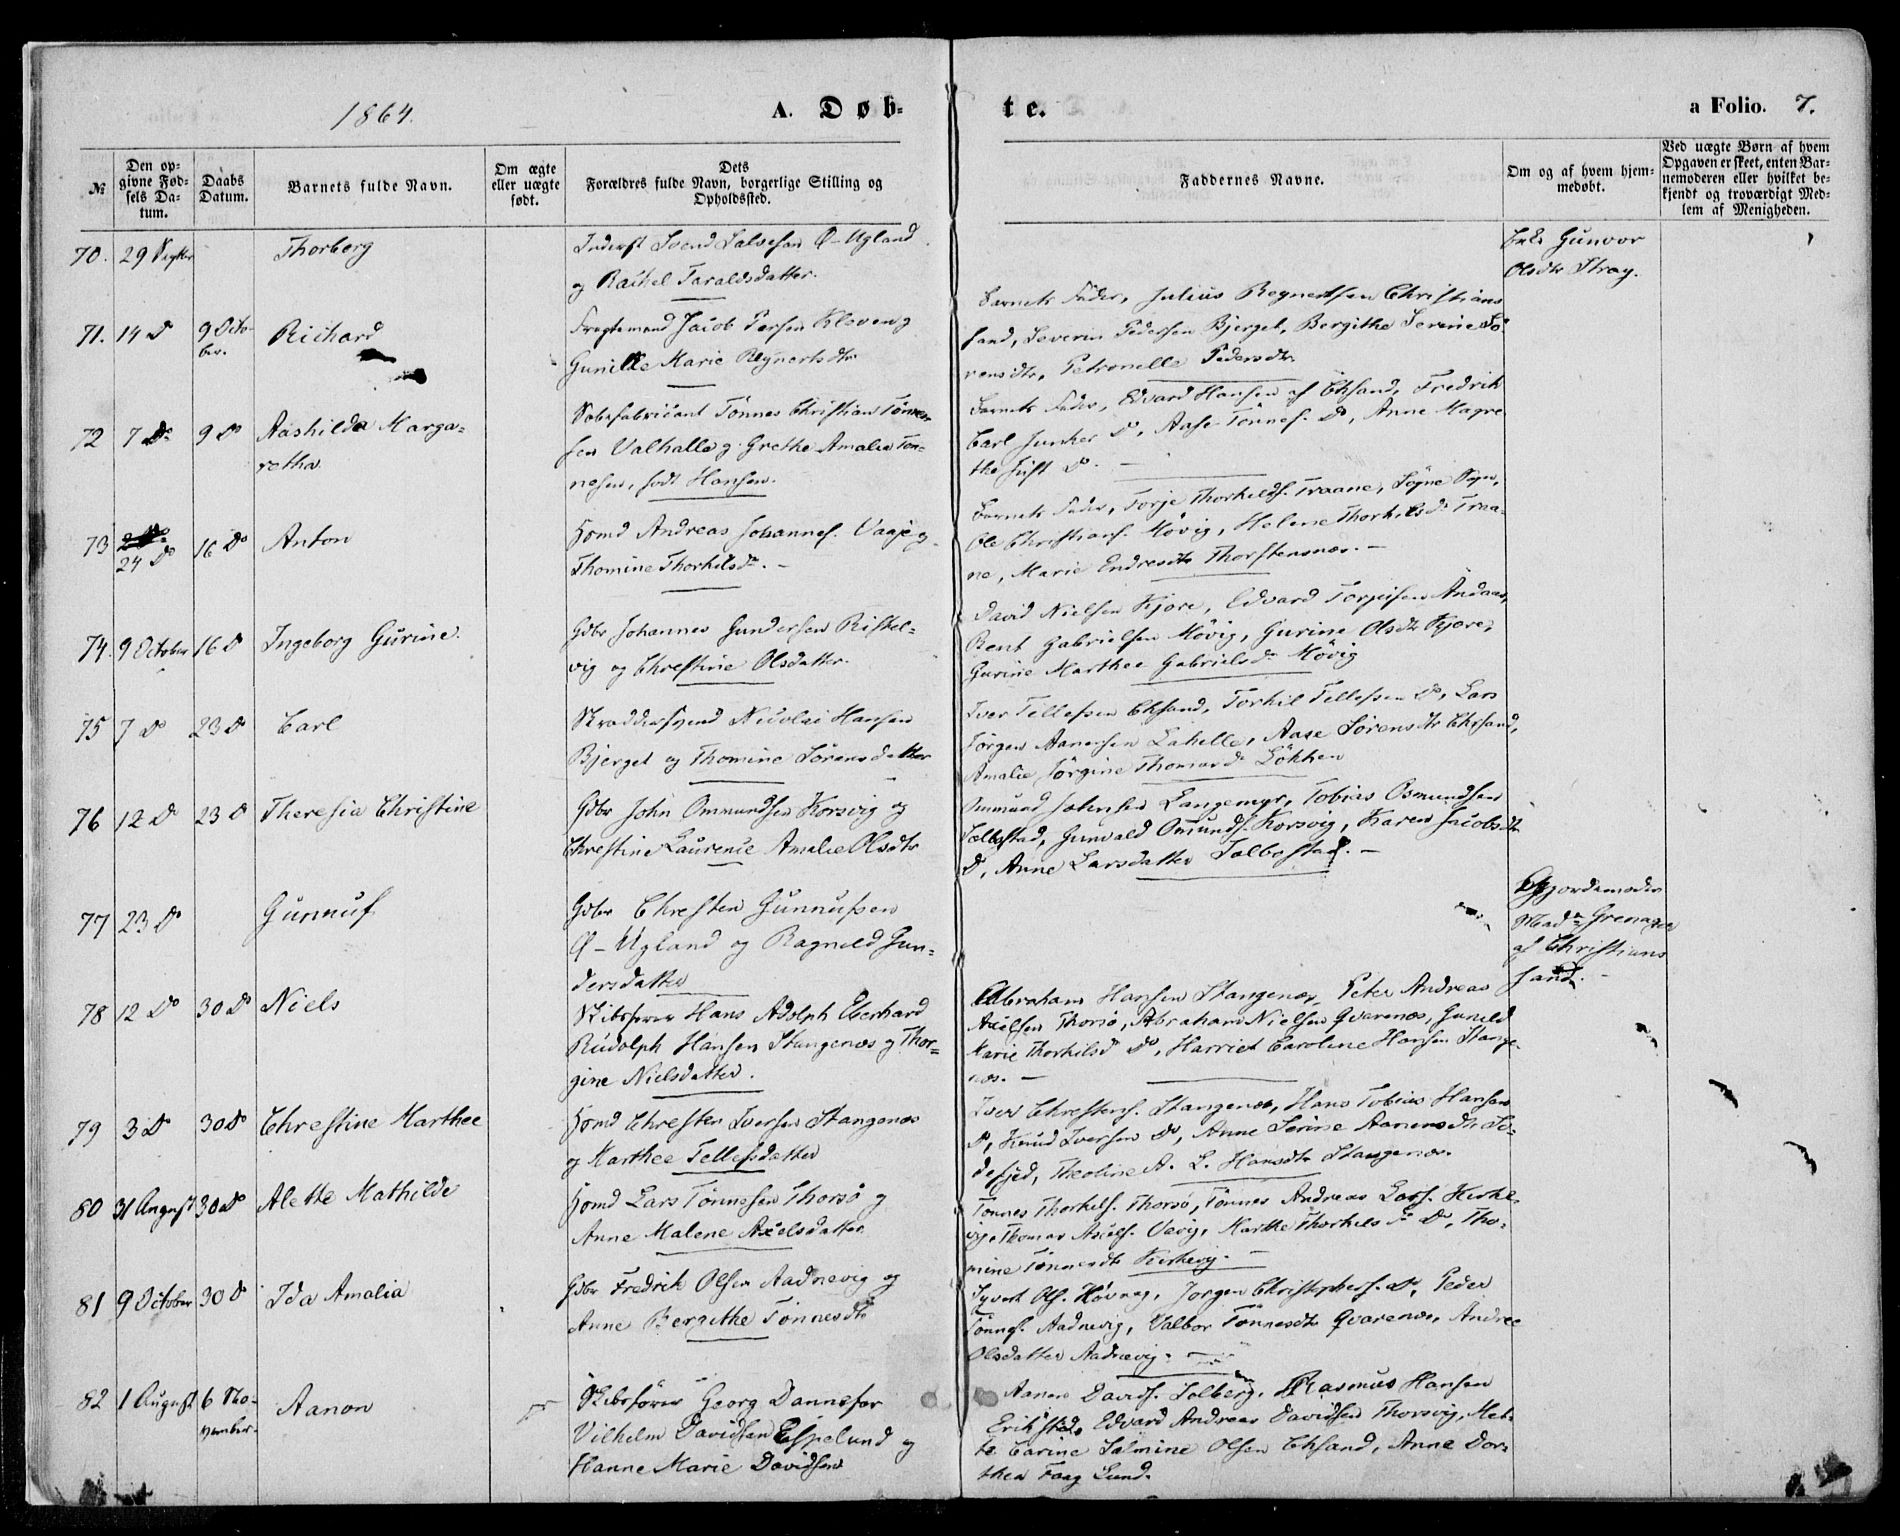 1864.
A. Døb-
te.
a Folio. 7.
№
Den op-
givne Fød-
sels Da-
tum.
Daabs
Datum.
Barnets fulde Navn.
Om ægte
eller uægte
født.
Dets
Forældres fulde Navn, borgerlige Stilling og
Opholdssted.
Faddernes Navne.
Om og af hvem hjem-
medøbt.
Ved uægte Børn af hvem
Opgaven er skeet, enten Bar-
nemoderen eller hvilket be-
kjendt og troværdigt Med-
lem af Menigheden.
70. 29 Septbr Thorborg
Inderst Svend Salvesen Ø-Ugland
og Rachel Taraldsdatter.
Enke Gunvor
Olsdtr Stray.
71. 14 Do 9 Octo-
ber. Richard
Fragtemand Jacob Persen Kloven og
Gunille Marie Regnertsdtr
Barnets Fader, Julius Regnertsen Christians
sand, Severin Pedersen Bjerget, Bergithe Serine Sö-
rensdtr, Petronelle Pedersdtr
72 7 Do 9 Do Aashilda Marga-
retha.
Tönnes Christian Tönnes-
sen Valhalla og Grethe Amalia Tön-
nesen, født Hansen.
Barnets Fader, Edvard Hansen af Chsand, Fredrik
Carl Junker Do, Aase Tönnes. Do, Anne Magre-
the Do.
73 24 Do 16 Do Anton
Hsmd Andreas Johannes. Vaaje og
Thomine Thorkilsdr.
Barnets Fader, Torje Thorkilds. Traane, Sögne
Ole Christians. Mövig, Helene Thorkilsdr Traa-
ne, Marie Endresdtr Thorstensnæs.
74. 9 October 16 Do Ingeborg Gurine.
Gdbr Johannes Gundersen Ristel-
vig og Chrestine Olsdatter.
David Nielsen Kjære, Edvard Torjusen Andaas,
Bent Gabrielsen Mövig, Gurine Olsdtr Kjære,
Gurine Marthee Gabrielsdr Mövig
75 7 Do 23 Do Carl
Skræddersvend Nicolai Hansen
Bjerget og Thomine Sörensdatter
Iver Tellefsen Chsand, Torkil Tellefsen Do, Lars
Jörgen Aanensen Lahelle, Aase Sörensdtr Chsand,
Amalie Jörgine Thomasdr Lökken
76 12 Do 23 Do Theresia Christine
Gdbr John Ommundsen Korsvig og
Chrestine Laurense Amalie Olsdtr
Ommund Jahnsen Langemyr, Tobias Osmundsen
Tolbostad, Gunvald Omunds. Korsvig, Karen Jacobsdtr
Do, Anne Larsdatter Tolbostad.
77 23 Do Gunnuf
Gdbr Chresten Gunnufsen
Ø-Ugland og Ragnild Gun-
dersdatter
Gjordemoder
Madm Grenager
af Christians
sand.
78 12 Do 30 Do Niels
Skibsfører Hans Adolph Eberhard
Rudolph Hansen Stangenæs og Thor-
gine Nielsdatter.
Abraham Hansen Stangenæs, Peter Andreas
Axelsen Thorsö, Abraham Nielsen Qvarenæs, Gunild
Marie Thorkilsdr Do, Harriet Caroline Hansen Stange-
næs.
79 3 Do 30 Do Chrestine Marthee
Hsmd Chresten Iversen Stangenæs
og Marthee Tellefsdatter
Iver Chrestens. Stangenæs, Hans Tobias Hansen
Do, Knud Iversen Do, Anne Serine Aanensdtr Se-
desjed, Theoline A. L. Hansdtr Stangenæs.
80 31 August 30 Do Alette Mathilde
Hsmd Lars Tönnesen Thorsö og
Anne Malene Axelsdatter
Tönnes Thorkels. Thorsö, Tönnes Andreas Lars. Kirke-
vig, Thomas Axels. Vevig, Marthe Thorkilsdr Do, Tho-
mine Tönnesdtr Kirkevig.
81 9 October 30 Do Ida Amalia
Gdbr Fredrik Olsen Aadnevig og
Anne Bergithe Tönnesdtr
Syvert Ols. Hövnag, Jorgen Christophers. Do, Peder
Tönnes. Aadnevig, Valbor Tönnesdtr Qvarenæs, Andrea
Olsdatter Aadnevig.
82 1 August 6 No-
vember. Aanon
Skibsfører Georg Dannefar
Vilhelm Davidsen Espelund og
Hanne Marie Davidsen
Aanen Davids. Solberg, Rasmus Hansen
Erikstad, Edvard Andreas Davidsen Thorsvig, Met-
te Carine Salmine Olsen Chsand, Anne Dor-
thea Faag Lund.